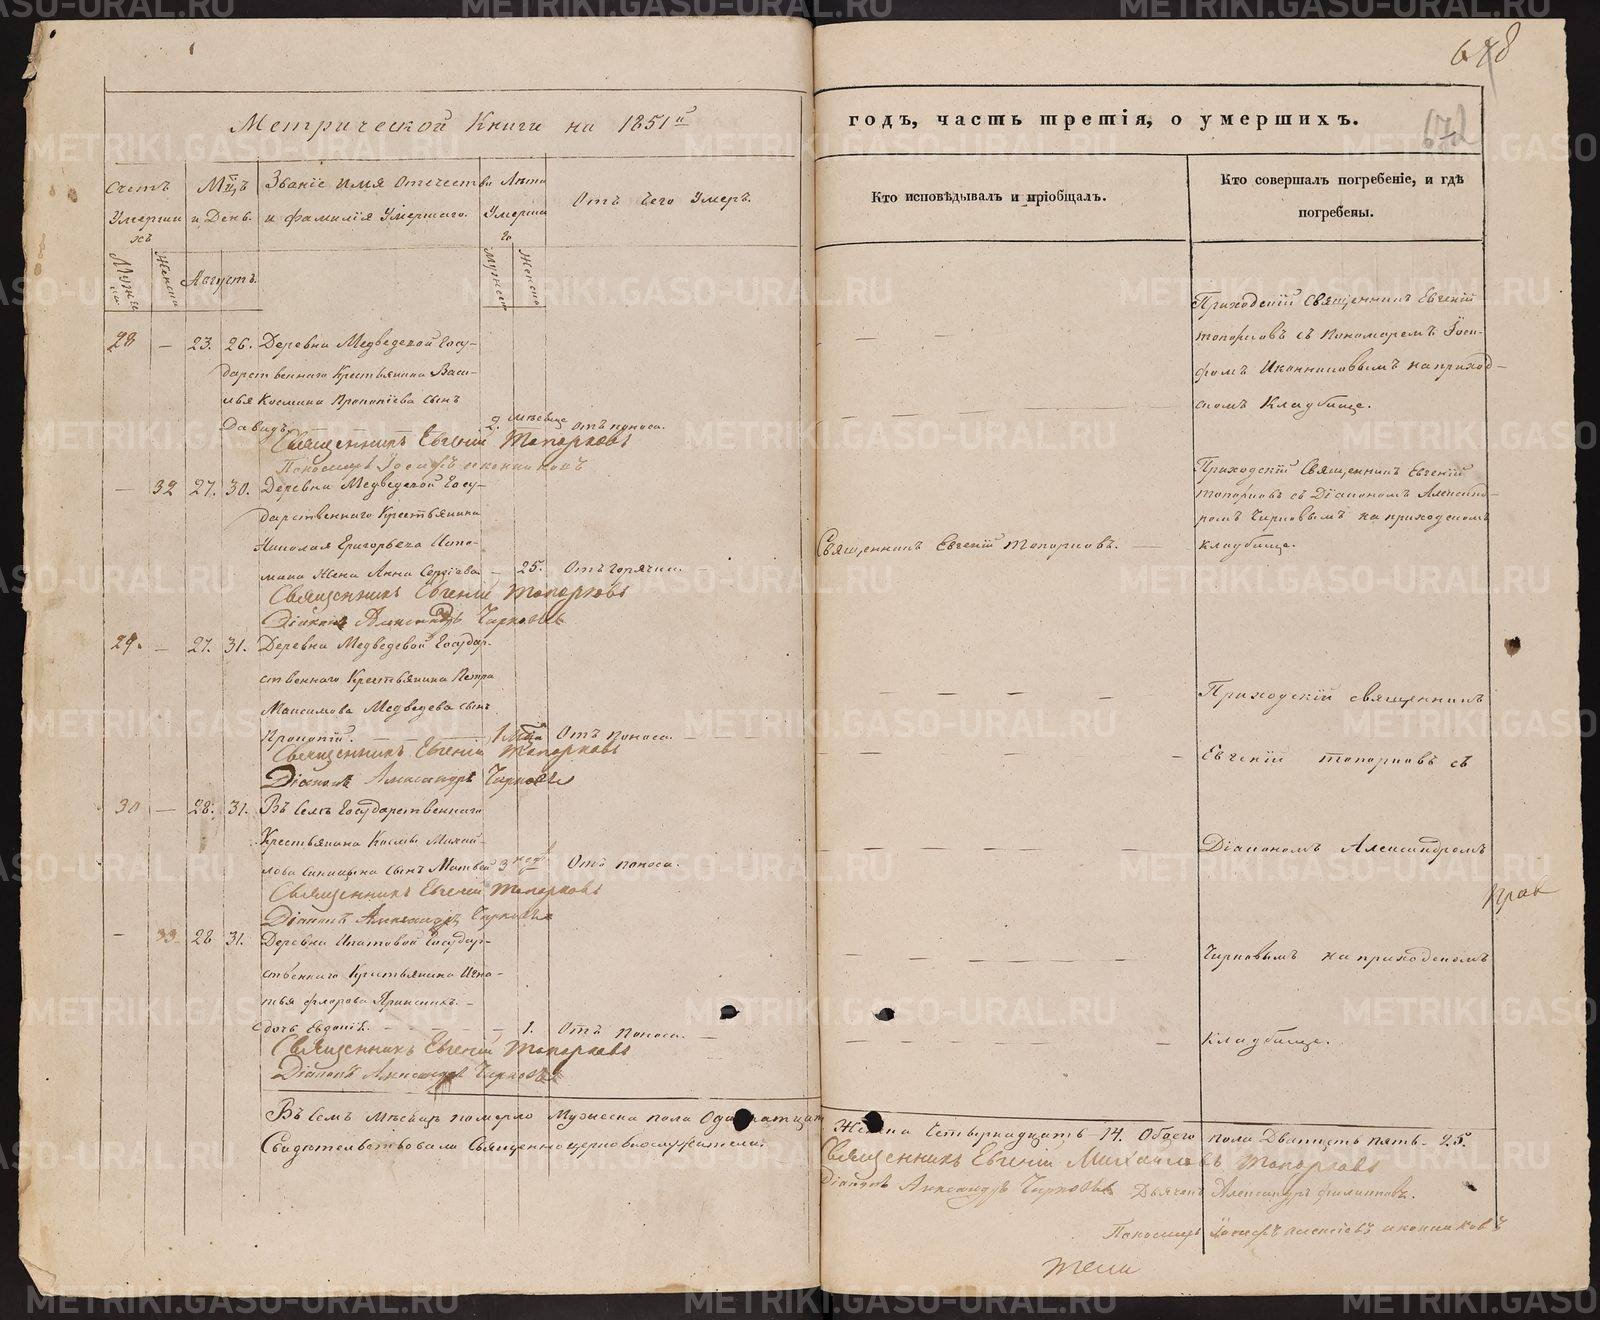 648
672
Метрической Книги на 1851й
годъ, часть третія, о умершихъ.
Счетъ Умершихъ
Мужеска
Женска
Мцъ и День.
Августъ.
Званіе Имя Отечество и фамилія Умершаго.
Лѣта Умершаго
Мужеска
Женска
Отъ чего Умеръ.
Кто исповѣдывалъ и пріобщалъ.
Кто совершалъ погребеніе, и гдѣ
погребены.
28 — 23. 26. Деревни Медведевой Госу-
дарственнаго Крестьянина Васи-
лья Космина Прокопіева сынъ
Давидъ 2. мѣсяца Отъ поноса.
Священникъ Евгеній Топорковъ
Пономарь Іосифъ Иконниковъ
Приходскій Священникъ Евгеній
Топорковъ съ Пономаремъ Іоси-
фомъ Иконниковымъ на приход-
скомъ Кладбище.
— 32 27. 30. Деревни Медведевой Госу-
дарственнаго Крестьянина
Николая Григорьева
Жена Анна Сергіева — 25. Отъ горячки.
Священникъ Евгеній Топорковъ
Діаконъ Александръ Чирковъ
Священникъ Евгеній Топорковъ.
Приходскій Священникъ Евгеній
Топорковъ съ Діакономъ Александ-
ромъ Чирковымъ на приходскомъ
кладбище.
29. — 27. 31. Деревни Медведевой Государ-
ственнаго Крестьянина Петра
Максимова Медведева сынъ
Прокопій. 1 Мца Отъ Поноса.
Священникъ Евгеній Топорковъ
Діаконъ Александръ Чирковъ
Приходскій священникъ
Евгеній Топорковъ съ
30 — 28. 31. Въ Селѣ Государственнаго
Крестьянина Космы Михай-
лова Синицына сынъ Матвей 3 нед. Отъ поноса.
Священникъ Евгеній Топорковъ
Діаконъ Александръ Чирковъ
Діакономъ Александромъ
— 33. 28 31. Деревни Ипатовой Государ-
ственнаго Крестьянина Игна-
тья Флорова
дочь Евдокія. — 1. Отъ Поноса.
Священникъ Евгеній Топорковъ
Діаконъ Александръ Чирковъ
Чирковымъ на приходскомъ
Кладбище.
Прав
Въ Семъ Мѣсяцѣ померло Мужеска пола Одинатцать
Женска Четырнадцать 14. Обаего пола Дватцеть пять. 25.
Свидетельствовали Священноцерковнослужители:
Священникъ Евгеній Михайловъ Топорковъ
Діаконъ Александръ Чирковъ Дьячекъ Александръ Филипповъ.
Пономарь Іосифъ Алексіевъ Иконниковъ